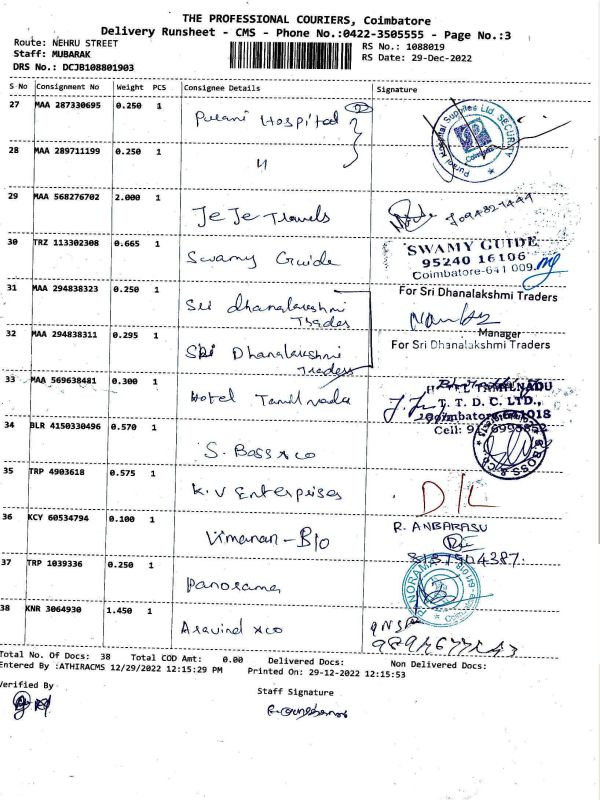 THE PROFESSIONAL COURIERS, Coimbatore
Delivery Runsheet - CMS - Phone No.:0422-3505555 - Page No.:3
Route: NEHRU STREET RS No.: 1088019
Staff: MUBARAK RS Date: 29-Dec-2022
DRS No.: DCJB108801903
S No Consignment No Weight PCS Consignee Details Signature
27 MAA 287330695 0.250 1 Purani Hospital
28 MAA 289711199 0.250 1 "
29 MAA 568276702 2.000 1 JeJe Travels
30 TRZ 113302308 0.665 1 Swamy Guide
SWAMY GUIDE
95240 16106
Coimbatore-641 009
31 MAA 294838323 0.250 1 Sri dhanalakshmi
Trades
For Sri Dhanalakshmi Traders
Manager
32 MAA 294838311 0.295 1 Sri Dhanalakshmi
Traders
For Sri Dhanalakshmi Traders
33 MAA 569638481 0.300 1 Hotel Tamilnadu
TAMILNADU
T. T. D. C. LTD.,
Coimbatore-641018
34 BLR 4150330496 0.570 1 S. Boss & co
35 TRP 4903618 0.575 1 K.V Enterprises D/L
36 KCY 60534794 0.100 1 Vimanan-B/o R. ANBARASU
37 TRP 1039336 0.250 1 Panorama PANORAMA
38 KNR 3064930 1.450 1 Aravind & co
Total No. Of Docs: 38 Total COD Amt: 0.00 Delivered Docs: Non Delivered Docs:
Entered By :ATHIRACMS 12/29/2022 12:15:29 PM Printed On: 29-12-2022 12:15:53
Verified By Staff Signature